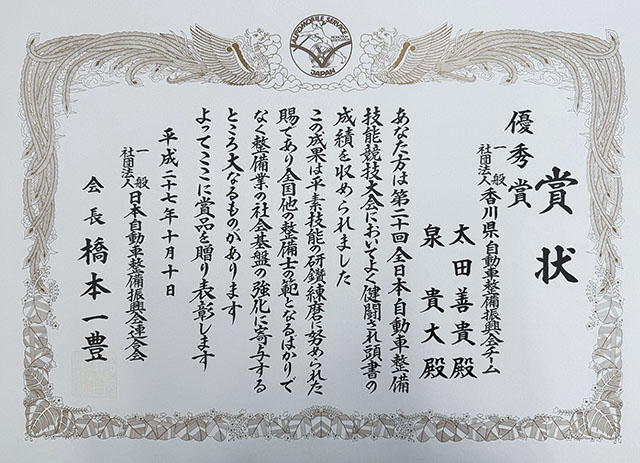 AUTOMOBILE SERVICE
JAPAN
賞状
優秀賞
一般社団法人 香川県自動車整備振興会チーム
太田善貴殿
泉貴大殿
あなた方は第二十回全日本自動車整備
技能競技大会においてよく健闘され頭書の
成績を収められました
この成果は平素技能の研鑽練磨に努められた
賜であり全国他の整備士の範となるばかりで
なく整備業の社会基盤の強化に寄与する
ところ大なるものがあります
よってここに賞品を贈り表彰します
平成二十七年十月十日
一般社団法人 日本自動車整備振興会連合会
会長 橋本一豊